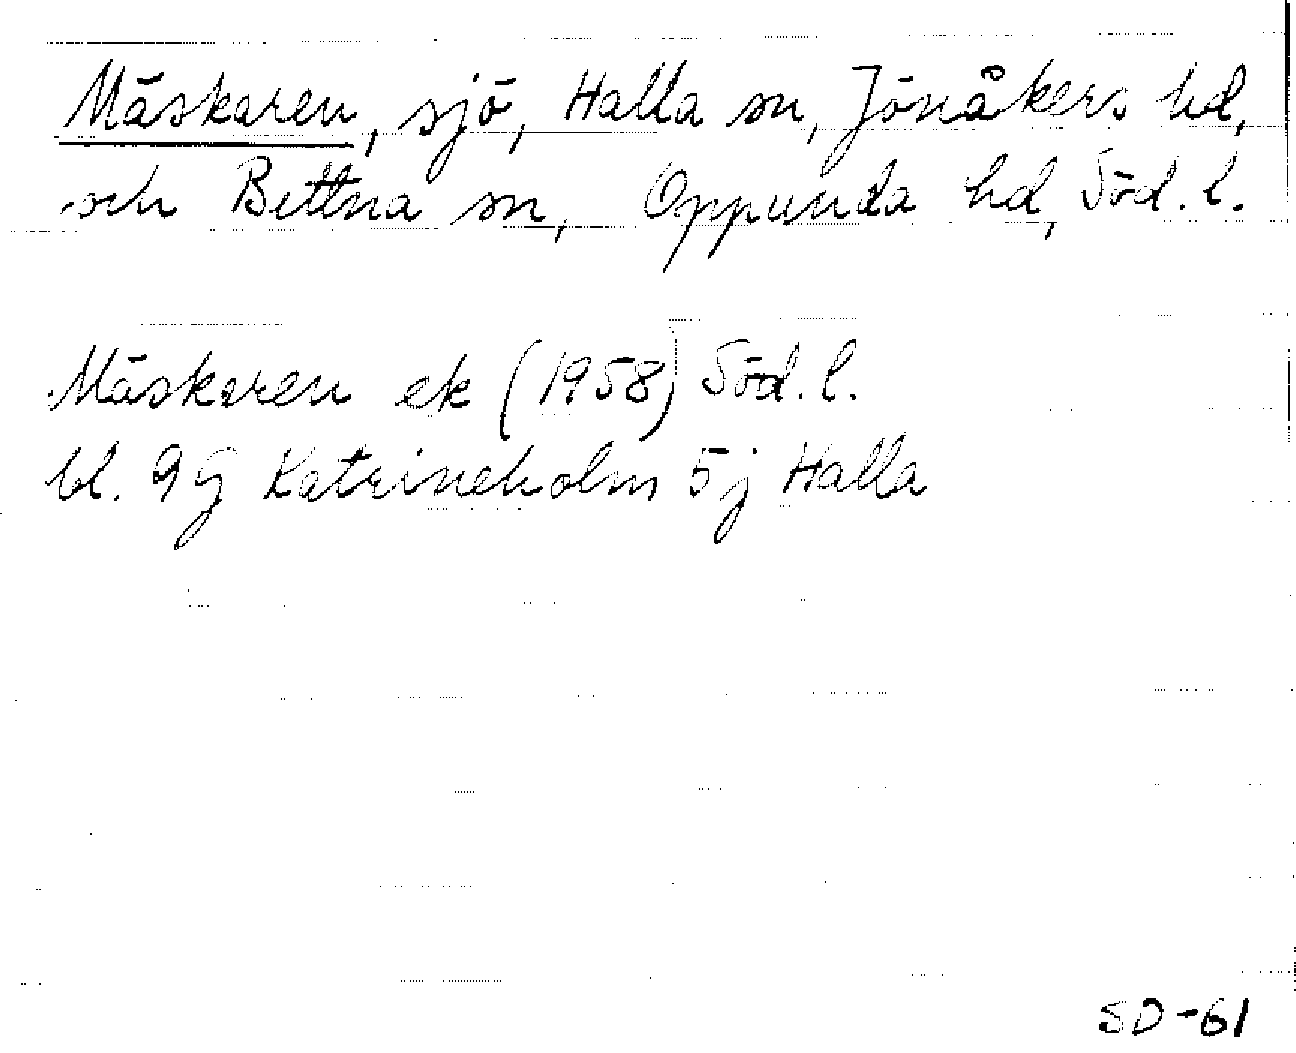 Mäskaren, sjö, Halla sn, Jönåkers hd,
och Bettna sn, Oppunda hd, Söd. l.
Mäskaren ek (1958) Söd. l.
bl. 9G Katrineholm 5j Halla
SD-61